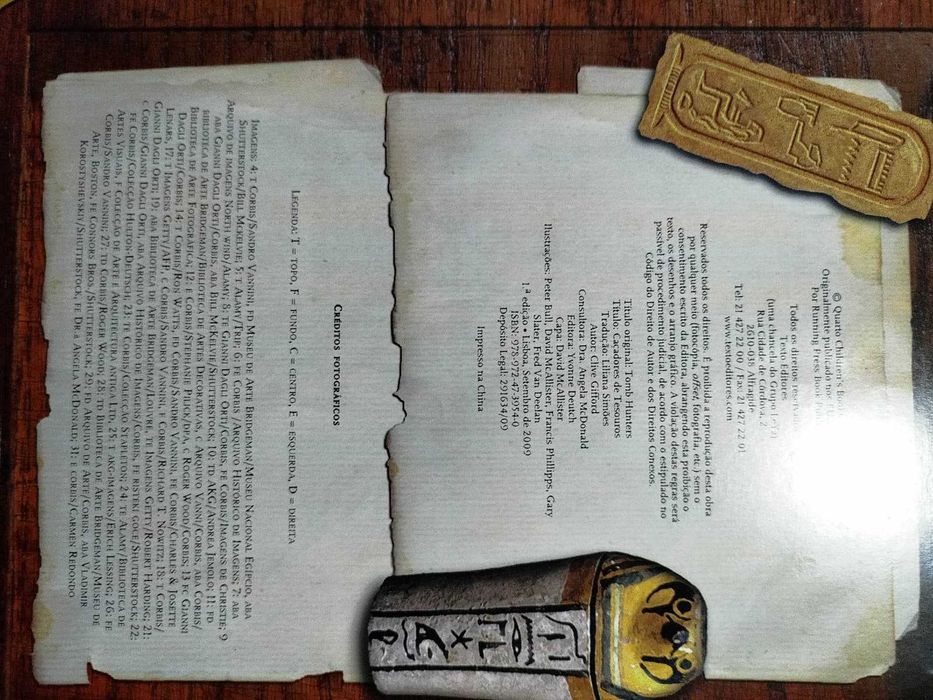 © Quarto Children's Books
Originalmente publicado nos
Por Running Press Book
Todos os direitos reservados
Texto Editores
(uma chancela do Grupo Leya)
Rua Cidade de Córdova, 2
2610-038 Alfragide
Tel: 21 427 22 00 / Fax 21 427 22 01
www.textoeditores.com
Reservados todos os direitos. É proibida a reprodução desta obra
por qualquer meio (fotocópia, offset, fotografia, etc.) sem o
consentimento escrito da Editora, abrangendo esta proibição o
texto, os desenhos e o arranjo gráfico. A violação destas regras será
passível de procedimento judicial, de acordo com o estipulado no
Código do Direito de Autor e dos Direitos Conexos.
Título original: Tomb Hunters
Título: Caçadores de Tesouros
Tradução: Liliana Simões
Autor: Clive Gifford
Consultora: Dra. Angela McDonald
Editora: Yvonne Deutch
Capa: David McAllister
Ilustrações: Peter Bull, David McAllister, Francis Phillipps, Gary
Slater, Fred Van Deelan
1.ª edição • Lisboa, Setembro de 2009
ISBN: 978-972-47-3954-0
Depósito Legal: 291634/09
Impresso na China
Créditos fotográficos
Legenda: T = topo, F = fundo, C = centro, E = esquerda, D = direita
Imagens: 4: t Corbis/Sandro Vannini, fd Museu de Arte Bridgeman/Museu Nacional Egípcio, aba
Shutterstock/Bill McKelvie; 5: t Alamy/Trip; 6: fe Corbis/Arquivo Histórico de Imagens; 7: aba
Arquivo de imagens North Wind/Alamy; 8: te Gianni Dagli Orti/Corbis, fe Corbis/Imagens de Christie; 9
aba Gianni Dagli Orti/Corbis, aba Bill McKelvie/Shutterstock; 10: td AKG/Andrea Jemolo; 11: fd
Biblioteca de Arte Bridgeman/Biblioteca de Artes Decorativas, c Arquivo Vanni/Corbis, aba Corbis/
Biblioteca de Arte Fotográfica; 12: e Corbis/Stephanie Pilick/dpa, c Roger Wood/Corbis; 13 fc Gianni
Dagli Orti/Corbis; 14: t Corbis/Ron Watts, fd Corbis/Sandro Vannini, fe Corbis/Charles & Josette
Lenars, 17: t Imagens Getty/AFP, c Corbis/Sandro Vannini, fe Corbis/Richard T. Nowitz; 18: t Corbis/
Gianni Dagli Orti; 19: aba Biblioteca de Arte Bridgeman/Louvre, te Imagens Getty/Robert Harding; 21:
c Corbis/Gianni Dagli Orti, aba Arquivo Histórico de Imagens/Corbis, fe risteki goce/Shutterstock; 22:
fe Corbis/Colecção Hulton-Deutsch; 23: fe Corbis/Colecção Stapleton; 24: te Alamy/Biblioteca de
Artes Visuais, f Colecção de Arte e Arquitectura Antiga, Ltd, 25: t akg-imagens/Erich Lessing; 26: fe
Corbis/Sandro Vannini; 27: td Corbis/Roger Wood; 28: td Biblioteca de Arte Bridgeman/Museu de
Arte, Boston, fe Connors Bros./Shutterstock; 29: fd Arquivo de Arte/Corbis, aba Vladimir
Korostyshevskiy/Shutterstock, fe Dr a Angela McDonald; 31: e corbis/Carmen Redondo